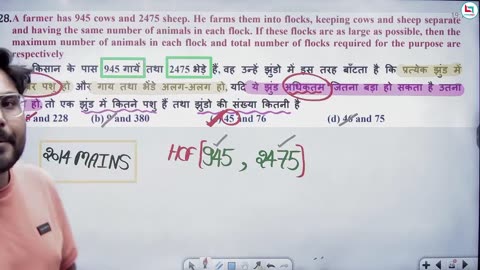 28. A farmer has 945 cows and 2475 sheep. He farms them into flocks, keeping cows and sheep separate
and having the same number of animals in each flock. If these flocks are as large as possible, then the
maximum number of animals in each flock and total number of flocks required for the purpose are
respectively
किसान के पास 945 गायें तथा 2475 भेड़े हैं, वह उन्हें झुंडो में इस तरह बाँटता है कि प्रत्येक झुंड में
पशु हो और गाय तथा भेड़ें अलग-अलग हो, यदि ये झुंड अधिकतम जितना बड़ा हो सकता है उतना
हो, तो एक झुंड में कितने पशु हैं तथा झुंडो की संख्या कितनी है
and 228 (b) 9 and 380 (c) 45 and 76 (d) 46 and 75
2014 MAINS
HCF [945, 2475]